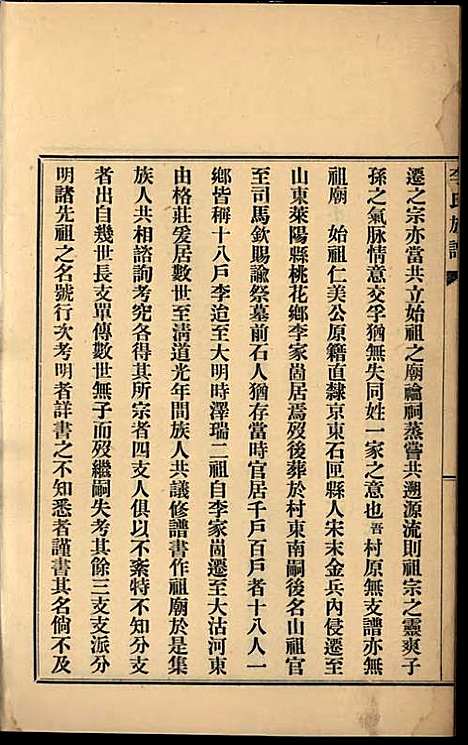 李氏族譜
遷之宗亦當共立始祖之廟禴祠蒸嘗共遡源流則祖宗之靈爽子
孫之氣脉情意交孚猶無失同姓一家之意也吾村原無支譜亦無
祖廟 始祖仁美公原籍直隸京東石匣縣人宋末金兵內侵遷至
山東萊陽縣桃花鄉李家崮居焉歿後葬於村東南嗣後名山祖官
至司馬欽賜諭祭墓前石人猶存當時官居千戶百戶者十八人一
鄉皆稱十八戶李迨至大明時澤瑞二祖自李家崮遷至大沽河東
由格莊爰居數世至淸道光年間族人共議修譜書作祖廟於是集
族人共相諮詢考究各得其所宗者四支人俱以不紊特不知分支
者出自幾世長支單傳數世無子而歿繼嗣失考其餘三支支派分
明諸先祖之名號行次考明者詳書之不知悉者謹書其名倘不及